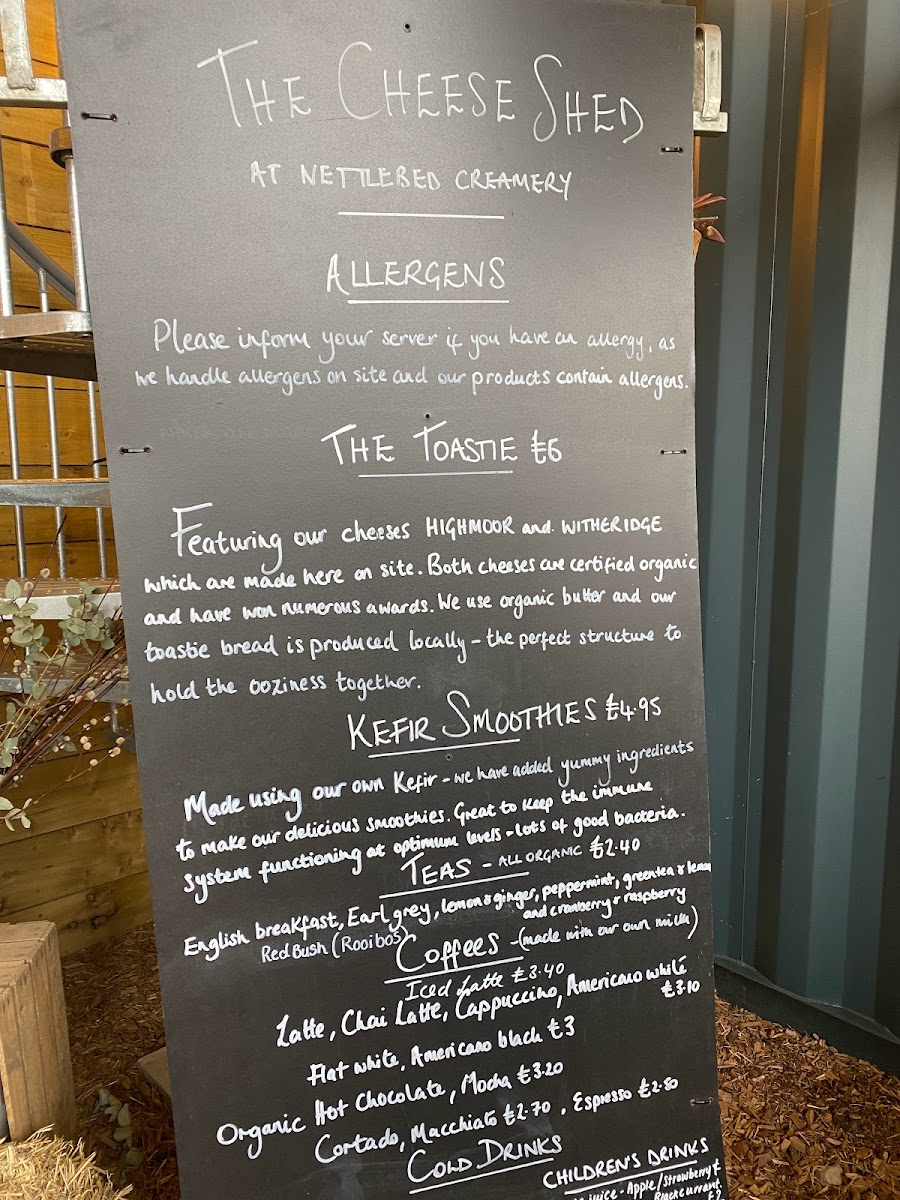 THE CHEESE SHED
AT NETTLEBED CREAMERY
ALLERGENS
Please inform your server if you have an allergy, as
we handle allergens on site and our products contain allergens.
THE TOASTIE £6
Featuring our cheeses HIGHMOOR and WITHERIDGE
which are made here on site. Both cheeses are certified organic
and have won numerous awards. We use organic butter and our
toastie bread is produced locally - the perfect structure to
hold the ooziness together.
KEFIR SMOOTHIES £4.95
Made using our own Kefir - we have added yummy ingredients
to make our delicious smoothies. Great to keep the immune
system functioning at optimum levels - lots of good bacteria.
TEAS - ALL ORGANIC £2.40
English breakfast, Earl grey, lemon & ginger, peppermint, green tea & lemon
and cranberry & raspberry
Red Bush (Rooibos)
Coffees - (made with our own milk)
Iced Latte £3.40
Latte, Chai Latte, Cappuccino, Americano white
£3.10
Flat white, Americano black £3
Organic Hot Chocolate, Mocha £3.20
Cortado, Macchiato £2.70, Espresso £2.80
COLD DRINKS
CHILDREN'S DRINKS
juice - Apple/Strawberry &
Blackcurrant